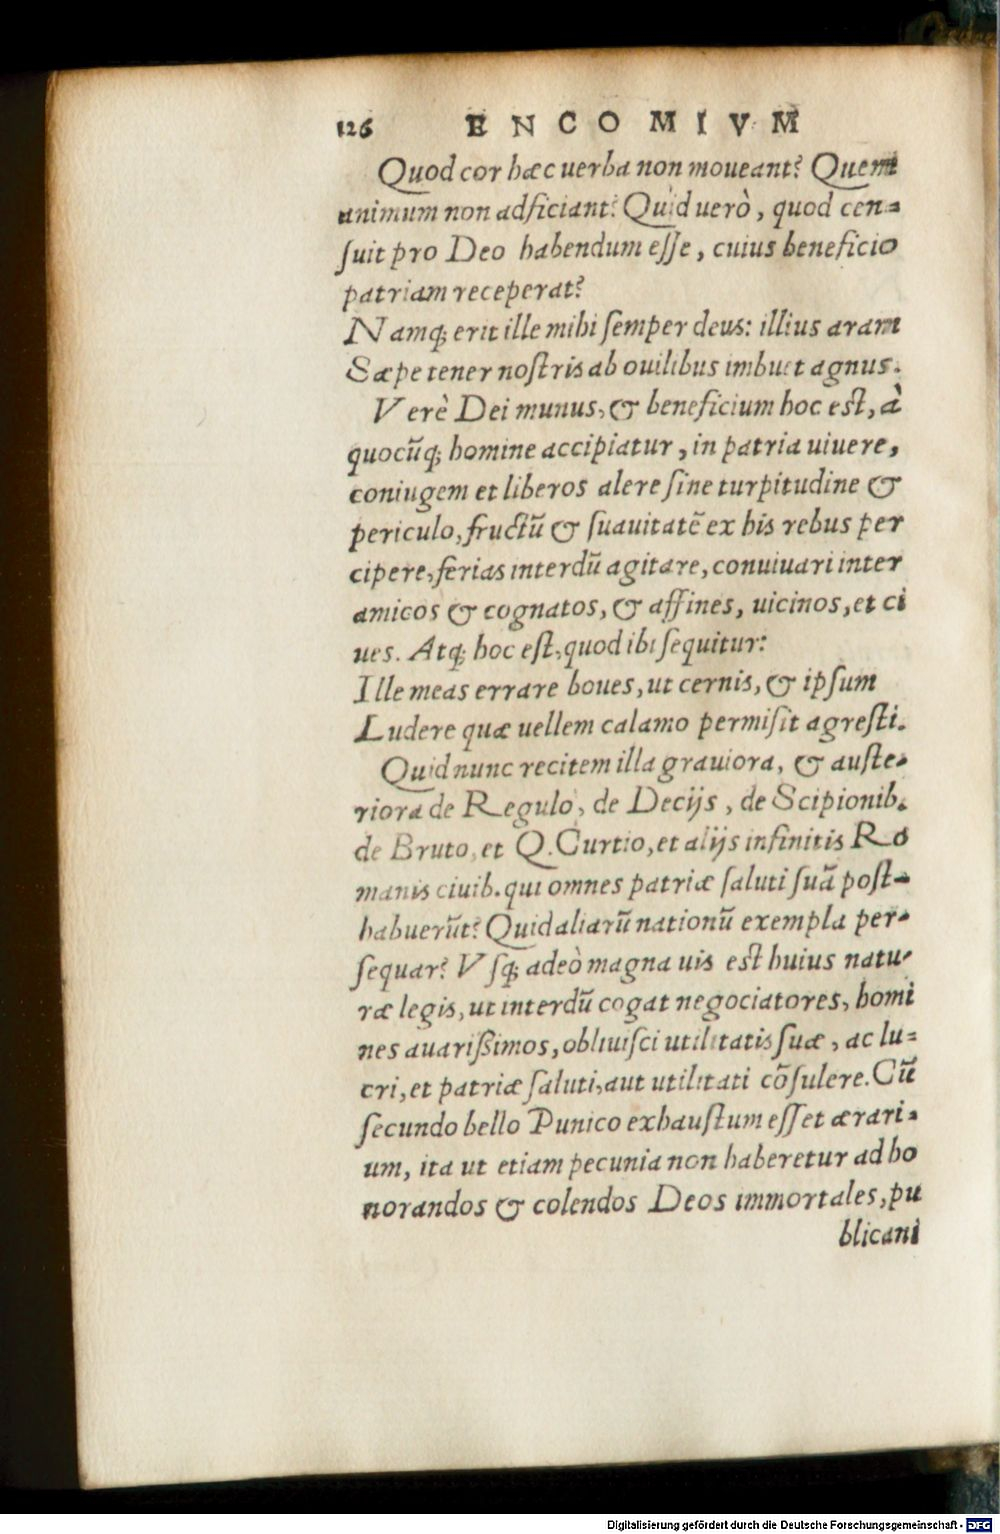 126 ENCOMIVM
Quod cor hæc uerba non moueant? Quem
animum non adficiant? Quid uerò, quod cen=
ſuit pro Deo habendum eſſe, cuius beneficio
patriam receperat?
Namq; erit ille mihi ſemper deus: illius aram
Sæpe tener noſtris ab ouilibus imbuet agnus.
Verè Dei munus, & beneficium hoc eſt, à
quocũq; homine accipiatur, in patria uiuere,
coniugem et liberos alere ſine turpitudine &
periculo, fructũ & ſuauitatẽ ex his rebus per
cipere, ferias interdũ agitare, conuiuari inter
amicos & cognatos, & affines, uicinos, et ci
ues. Atq; hoc eſt, quod ibi ſequitur:
Ille meas errare boues, ut cernis, & ipſum
Ludere quæ uellem calamo permiſit agreſti.
Quid nunc recitem illa grauiora, & auſte=
riora de Regulo, de Decijs, de Scipionib.
de Bruto, et Q. Curtio, et alijs infinitis Ro
manis ciuib. qui omnes patriæ ſaluti ſuã poſt=
habuerũt? Quid aliarũ nationũ exempla per=
ſequar? Vſq; adeò magna uis eſt huius natu=
ræ legis, ut interdũ cogat negociatores, homi
nes auarißimos, obliuiſci utilitatis ſuæ, ac lu=
cri, et patriæ ſaluti, aut utilitati cõſulere. Cũ
ſecundo bello Punico exhauſtum eſſet ærari=
um, ita ut etiam pecunia non haberetur ad ho
norandos & colendos Deos immortales, pu
blicani
Digitalisierung gefördert durch die Deutsche Forschungsgemeinschaft - DFG